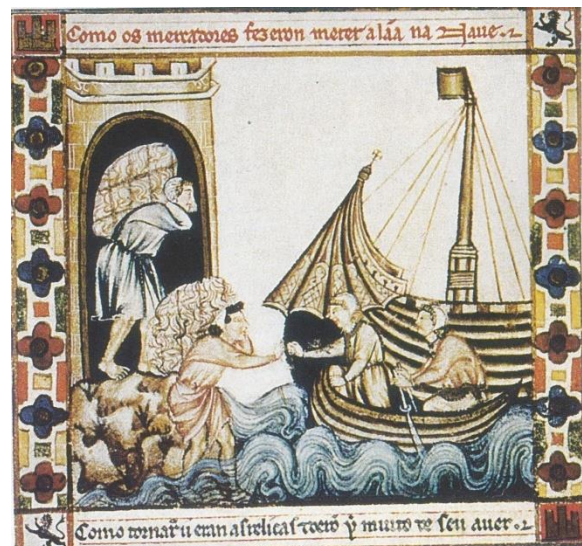 Como os mercadores fezeron meter a lãa na Naue
Como tornar̃ u eran as relicas ỹ muito de seu auer